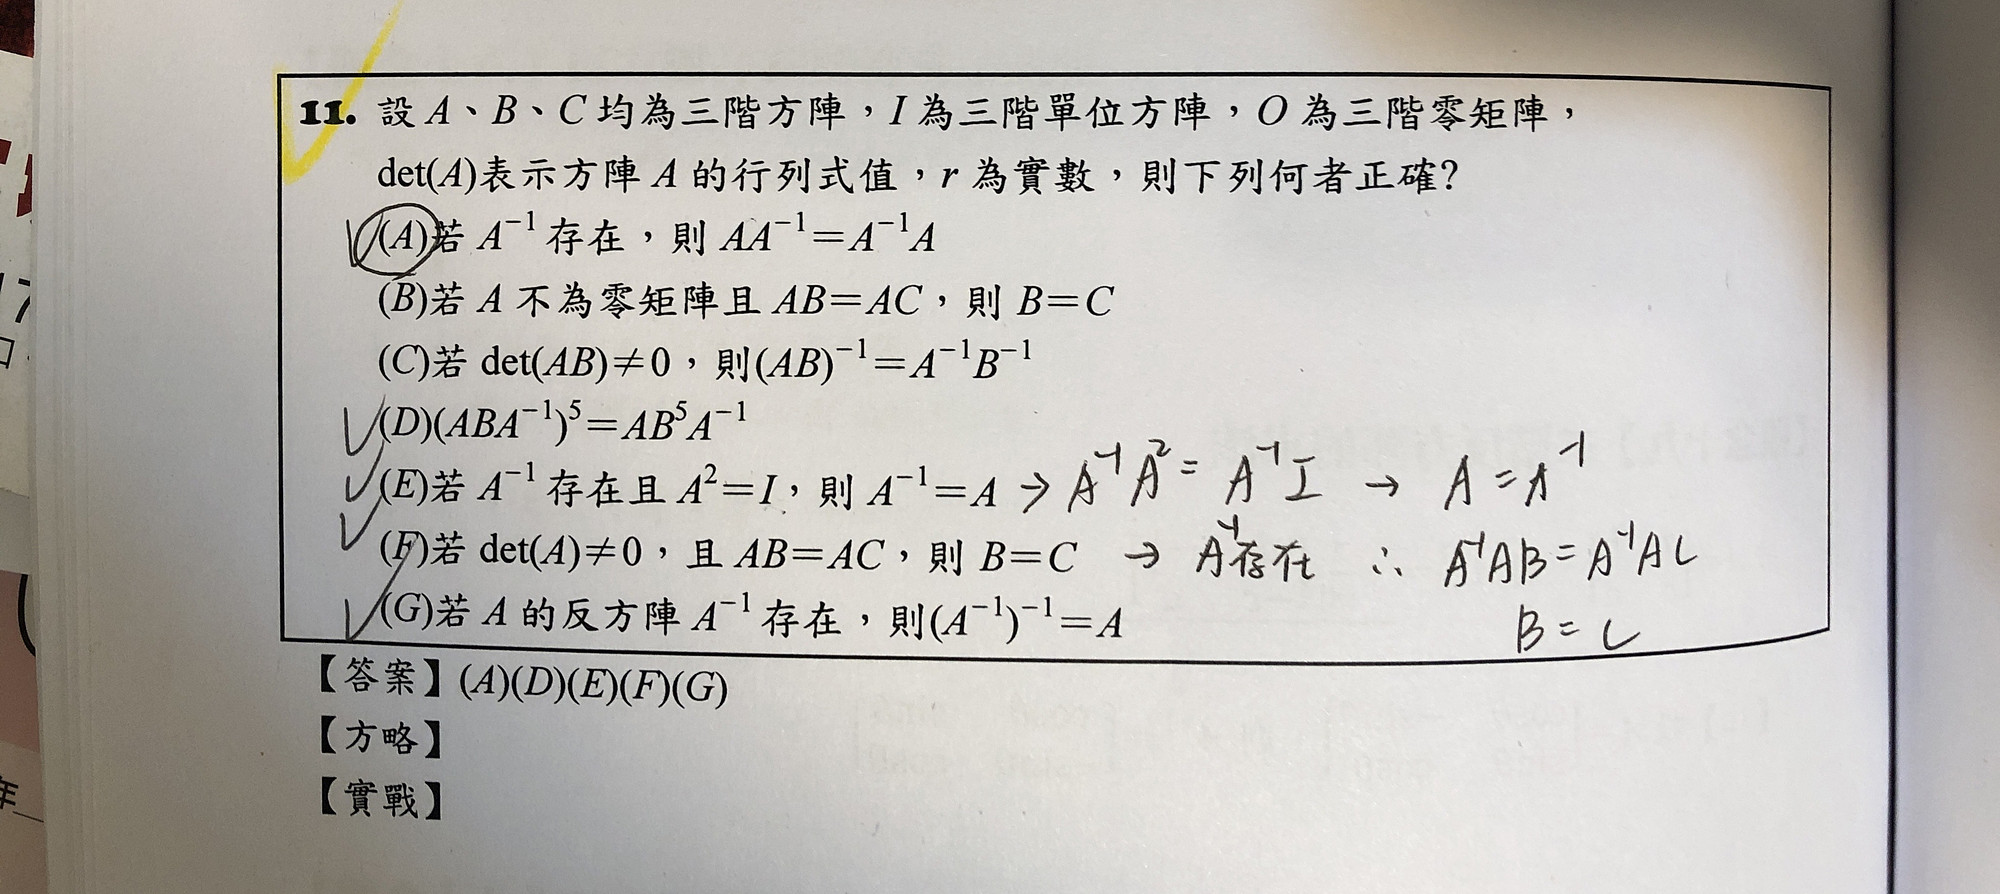 11. 設 A、B、C 均為三階方陣，I 為三階單位方陣，O 為三階零矩陣，
det(A)表示方陣 A 的行列式值，r 為實數，則下列何者正確？
(A)若 A⁻¹ 存在，則 AA⁻¹=A⁻¹A
(B)若 A 不為零矩陣且 AB=AC，則 B=C
(C)若 det(AB)≠0，則(AB)⁻¹=A⁻¹B⁻¹
(D)(ABA⁻¹)⁵=AB⁵A⁻¹
(E)若 A⁻¹ 存在且 A²=I，則 A⁻¹=A → A⁻¹A²=A⁻¹I → A=A⁻¹
(F)若 det(A)≠0，且 AB=AC，則 B=C → A⁻¹存在 ∴ A⁻¹AB=A⁻¹AC
(G)若 A 的反方陣 A⁻¹ 存在，則(A⁻¹)⁻¹=A
B=C
【答案】(A)(D)(E)(F)(G)
【方略】
【實戰】
17
年